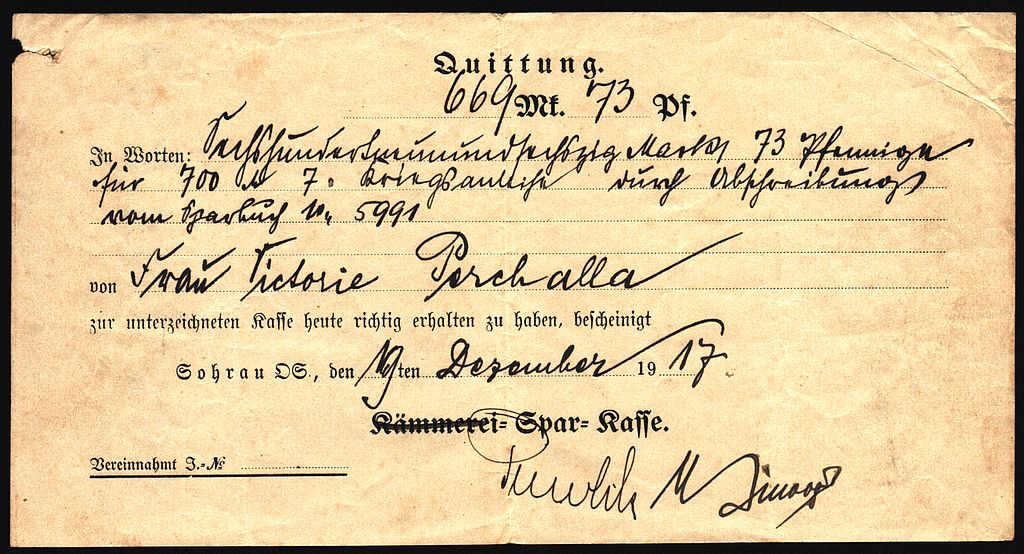 Quittung.
669 Mk. 73 Pf.
In Worten: Sechshundertneunundsechszig Mark 73 Pfennige
für 700 M 7. Kriegsanleihe durch Abschreibung
vom Sparbuch N. 5991
von Frau Victorie Porchalla
zur unterzeichneten Kasse heute richtig erhalten zu haben, bescheinigt
Sohrau OS., den 19ten Dezember 1917
Kämmerei- Spar- Kasse.
Vereinnahmt J.-№